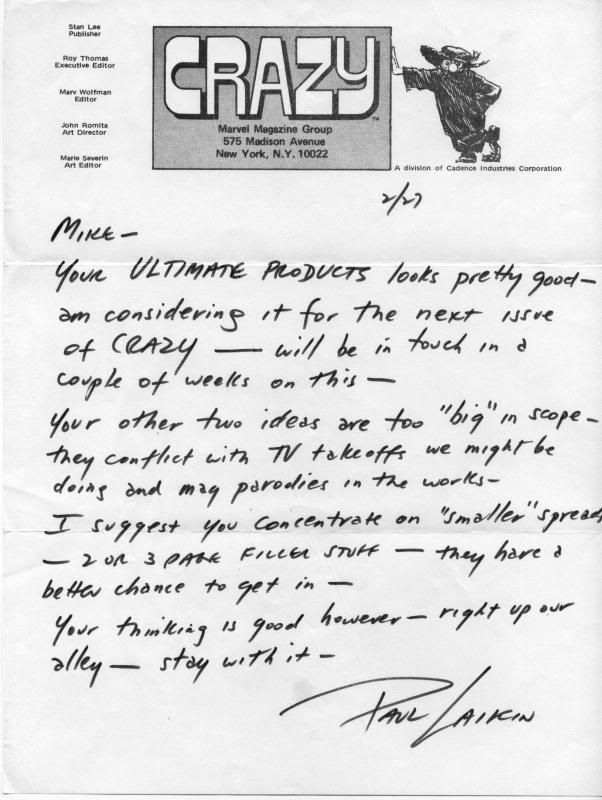 Stan Lee
Publisher
Roy Thomas
Executive Editor
Marv Wolfman
Editor
John Romita
Art Director
Marie Severin
Art Editor
CRAZY
TM
Marvel Magazine Group
575 Madison Avenue
New York, N.Y. 10022
A division of Cadence Industries Corporation
2/27
MIKE—
YOUR ULTIMATE PRODUCTS looks pretty good—
am considering it for the next issue
of CRAZY — will be in touch in a
couple of weeks on this —
Your other two ideas are too "big" in scope—
they conflict with TV takeoffs we might be
doing and mag parodies in the works—
I suggest you concentrate on "smaller" spreads
— 2 OR 3 PAGE FILLER STUFF — they have a
better chance to get in —
Your thinking is good however — right up our
alley — stay with it —
PAUL LAIKIN